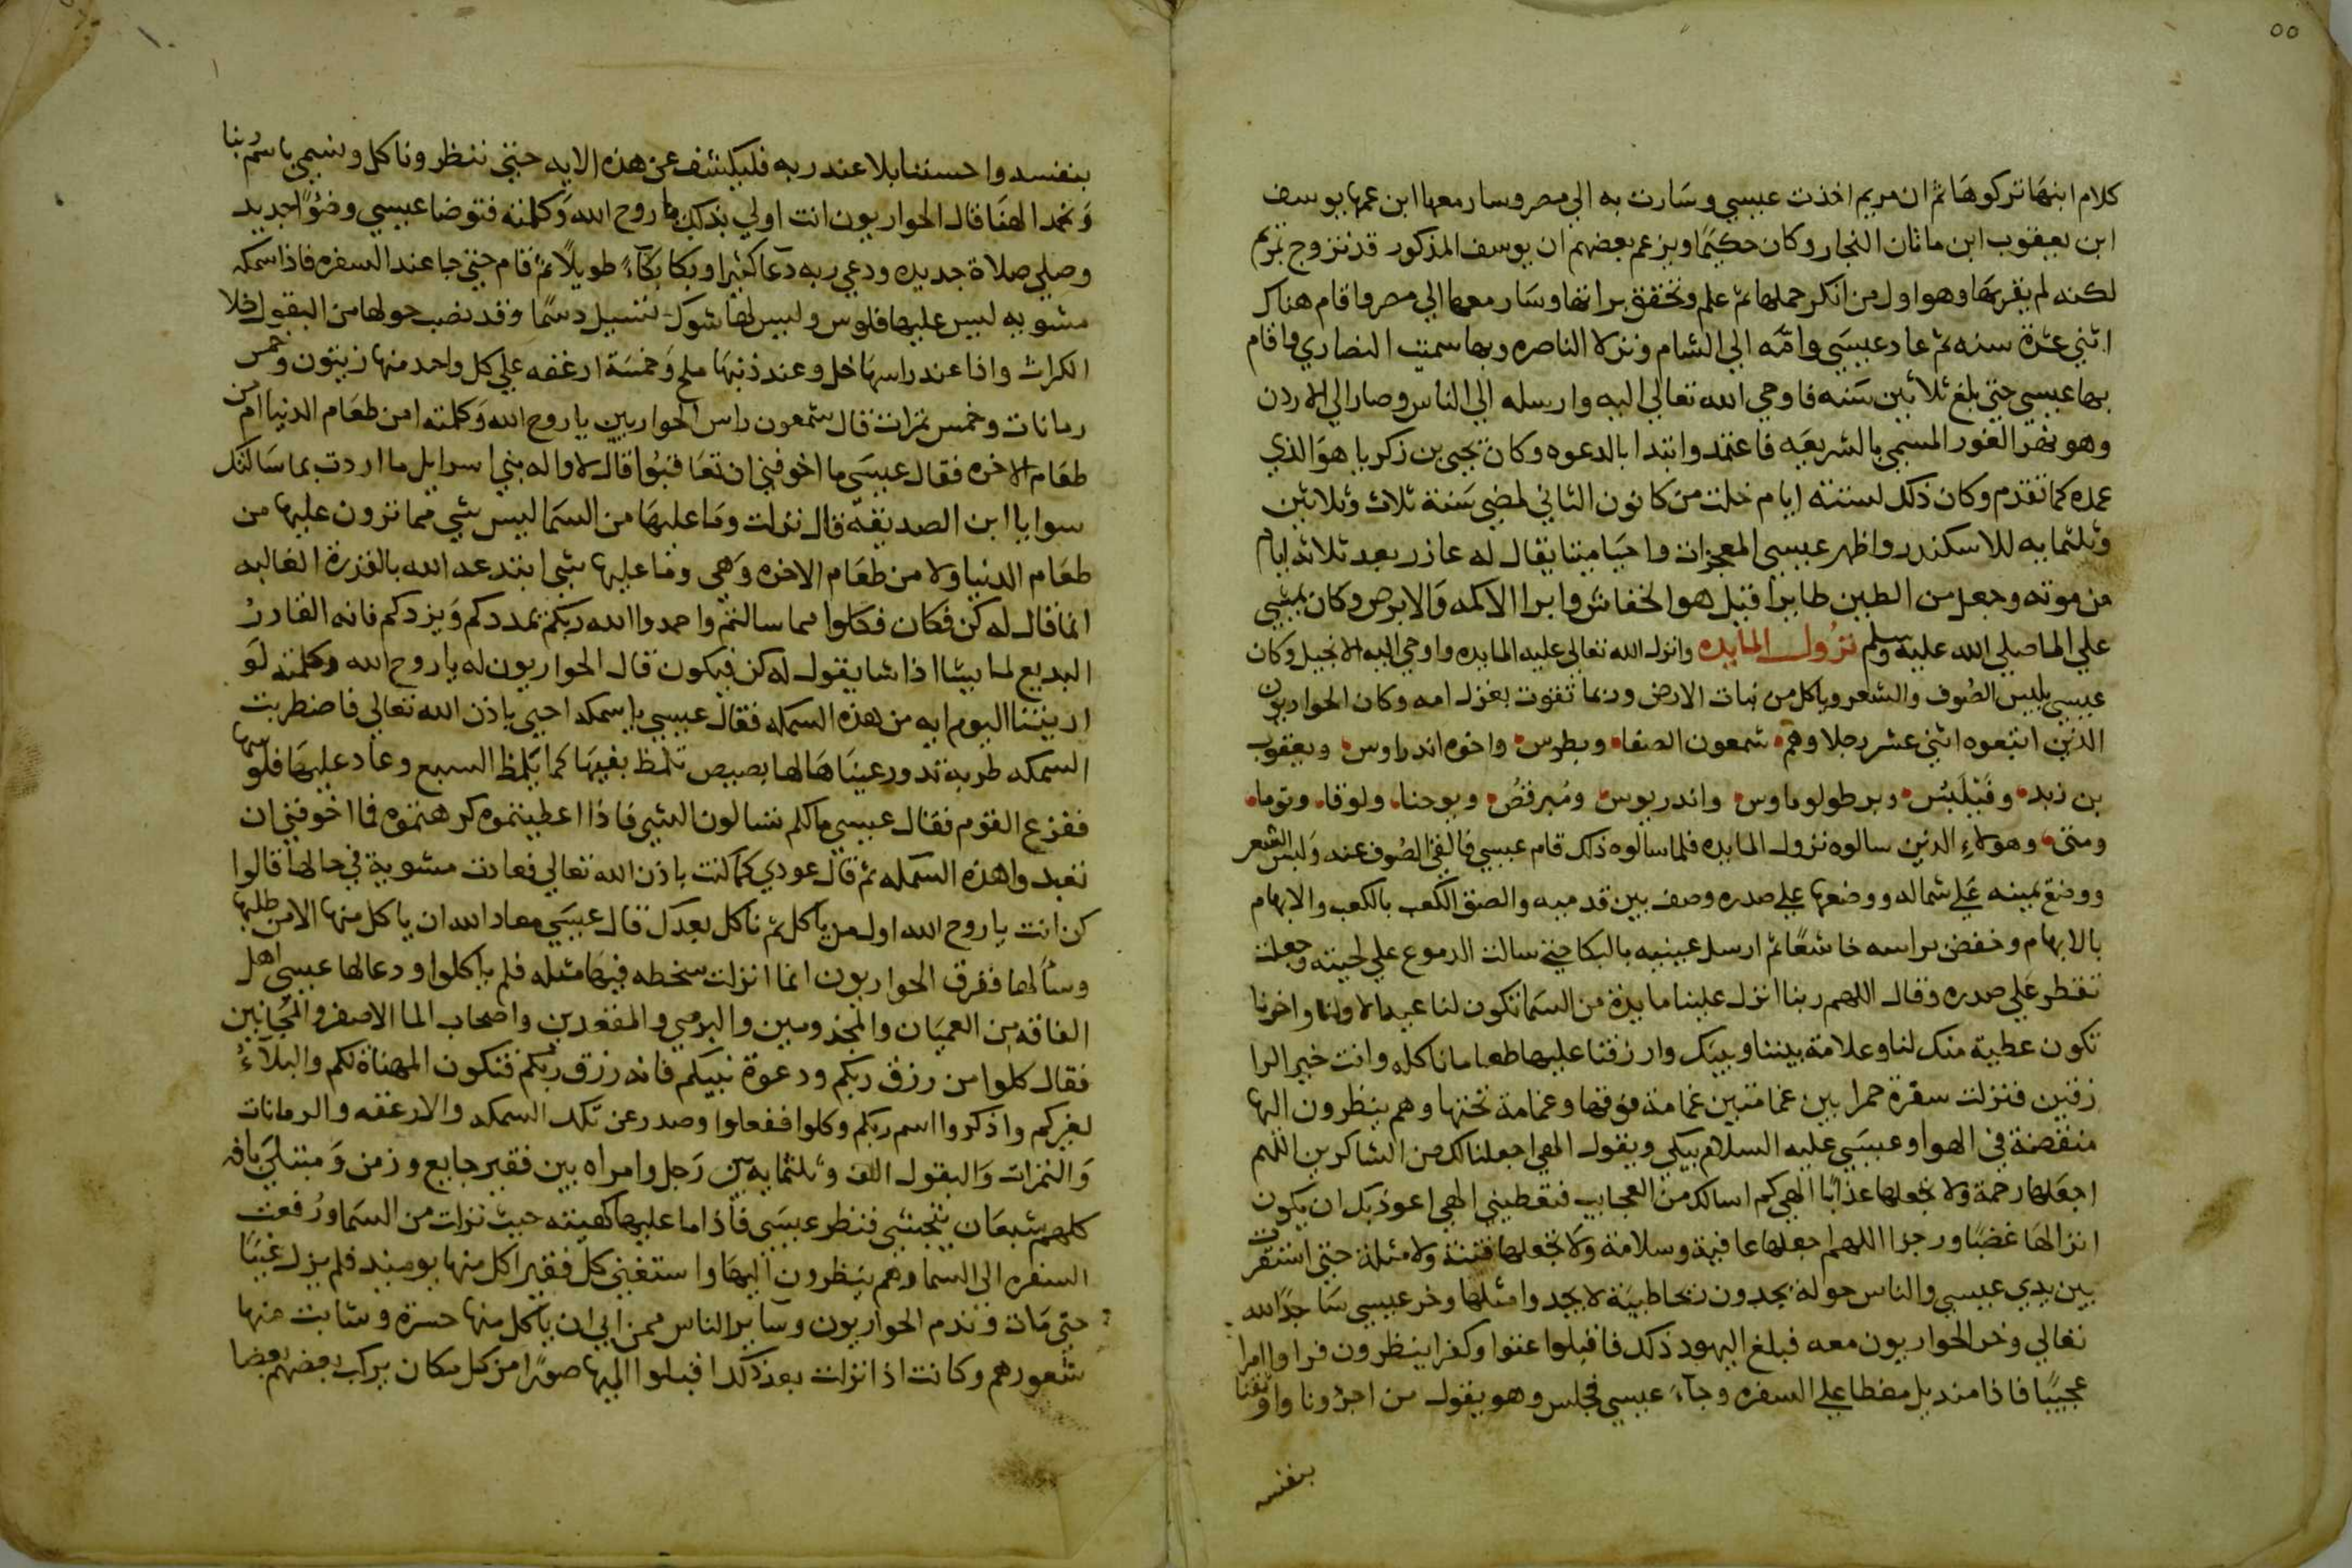 ٥٥
كلام ابنها تركوها ثم ان مريم اخذت عيسي وسارت به الي مصر وسار معها ابن عمها يوسف
ابن يعقوب ابن ماثان النجار وكان حكيمًا ويزعم بعضهم ان يوسف المذكور قد تزوج بمريم
لكنه لم يقربها وهو اول من انكر حملها ثم علم وتحقق براتها وسار معها الي مصر واقام هناك
اثني عشرة سنه ثم عاد عيسي وامه الي الشام ونزلا الناصره وبها سميت النصاري واقام
بها عيسي حتي بلغ ثلاثين سنه فاوحي الله تعالي اليه وارسله الي الناس وصار الي الاردن
وهو نهر الغور المسمي بالشريعه فاعتمد وابتدا بالدعوه وكان يحيي بن زكريا هو الذي
عمده كما تقدم وكان ذلك لستة ايام خلت من كانون الثاني لمضي سنة ثلاث وثلاثين
وثلثمايه للاسكندر واظهر عيسي المعجزات واحيا ميتا يقال له عازر بعد ثلاثه ايام
من موته وجعل من الطين طايرا قيل هو الخفاش وابرا الاكمه والابرص وكان يمشي
علي الما صلي الله عليه وسلم نزول المايده وانزل الله تعالي عليه المايده واوحي اليه الانجيل وكان
عيسي يلبس الصوف والشعر وياكل من نبات الارض وربما تقوت بغزل امه وكان الحواريون
الذين اتبعوه اثني عشر رجلا وهم شمعون الصفا وبطرس واخوه اندراوس ويعقوب
بن زبد وفيلبس وبرطولوماوس واندريوس ومرقص ويوحنا ولوقا وتوما
ومتي وهولاءِ الذين سالوه نزول المايده فلما سالوه ذلك قام عيسي فالقي الصوف عنه ولبس الشعر
ووضع يمينه علي شماله ووضعها علي صدره وصف بين قدميه والصق الكعب بالكعب والابهام
بالابهام وخفض براسه خاشعًا ثم ارسل عينيه بالبكا حتي سالت الدموع علي لحيته وجعلت
تقطر علي صدره وقال اللهم ربنا انزل علينا مايدة من السما تكون لنا عيدا لاولنا واخرنا
تكون عطية منك لنا وعلامة بيننا وبينك وارزقنا عليها طعاما ناكله وانت خير الرا
زقين فنزلت سفرة حمرا بين غمامتين غمامة فوقها وغمامة تحتها وهم ينظرون اليها
منقضة في الهوا وعيسي عليه السلام يبكي ويقول الهي اجعلنا لك من الشاكرين اللهم
اجعلها رحمة ولا تجعلها عذابًا الهي كم اسالك من العجايب فتعطيني الهي اعوذ بك ان يكون
انزالها غضبًا ورجزا اللهم اجعلها عافية وسلامة ولا تجعلها فتنة ولا مثلة حتي استقرت
بين يدي عيسي والناس حوله يجدون ريحا طيبة لا يجدوا مثلها وخر عيسي ساجدًا لله
تعالي وخر الحواريون معه فبلغ اليهود ذلك فاقبلوا عتوا وكفرا ينظرون فراوا امرا
عجيبًا فاذا منديل مغطا علي السفره وجاءَ عيسي فجلس وهو يقول من اجرؤنا واوثقنا
بنفسه
بنفسه واحسننا بلا عند ربه فليكشف عن هذه الايه حتي ننظر وناكل ونسمي باسم ربنا
ونحمد الهنا قال الحواريون انت اولي بذلك يا روح الله وكلمته فتوضا عيسي وضوًا جديد
وصلي صلاة جديده ودعي ربه دعا كثيرا وبكا بكاءً طويلاً ثم قام حتي جا عند السفره فاذا سمكه
مشويه ليس عليها فلوس وليس لها شوك تسيل دسمًا وقد نضب حولها من البقول خلا
الكراث واذا عند راسها خل وعند ذنبها ملح وخمسة ارغفه علي كل واحد منها زيتون وخمس
رمانات وخمس تمرات قال شمعون راس الحواريين يا روح الله وكلمته امن طعام الدنيا ام من
طعام الاخره فقال عيسي ما اخوفني ان تعاقبوا قال لا واله بني اسرايل ما اردت بما سالتك
سوا يا ابن الصديقة قال نزلت وما عليها من السما ليس شي مما ترون عليها من
طعام الدنيا ولا من طعام الاخره وهي وما عليها شي ابتدعه الله بالقدرة الغالبه
انما قال له كن فكان فكلوا مما سالتم واحمدوا الله ربكم يمددكم ويزدكم فانه القادر
البديع لما يشا اذا شا يقول له كن فيكون قال الحواريون له يا روح الله وكلمته لو
اريتنا اليوم ايه من هذه السمكه فقال عيسي يا سمكه احيي باذن الله تعالي فاضطربت
السمكه طرية تدور عيناها لها بصيص تلمظ بفيها كما يتلمظ السبع وعاد عليها فلوسها
ففزع القوم فقال عيسي ما لكم تسالون الشي فاذا اعطيتموه كرهتموه فما اخوفني ان
تعبدوا هذه السمكه ثم قال عودي كما كنت باذن الله تعالي فعادت مشوية في حالها قالوا
كن انت يا روح الله اول من ياكل ثم ناكل بعدك قال عيسي معاذ الله ان ياكل منها الا من طلبها
وسالها ففرق الحواريون انما انزلت سخطه فيها مثله فلم ياكلوا ودعا لها عيسي اهل
الفاقه من العميان والمجذومين والبرصي والمقعدين واصحاب الما الاصفر والمجانين
فقال كلوا من رزق ربكم ودعوة نبيكم فانه رزق ربكم فتكون المهناة لكم والبلاءُ
لغيركم واذكروا اسم ربكم وكلوا ففعلوا وصدر عن تلك السمكه والارغفه والرمانات
والتمرات والبقول الف وثلثمايه بين رجل وامراه بين فقير جايع وزمن ومبتلي بافه
كلهم شبعان يتجشي فنظر عيسي فاذا ما عليها كهيئته حيث نزلت من السما ورفعت
السفره الي السما وهم ينظرون اليها واستغني كل فقير اكل منها يوميذ فلم يزل غنيًا
حتي مات وندم الحواريون وساير الناس ممن ابي ان ياكل منها حسرة وشابت منها
شعورهم وكانت اذا نزلت بعد ذلك اقبلوا اليها صورًا من كل مكان يركب بعضهم بعضا